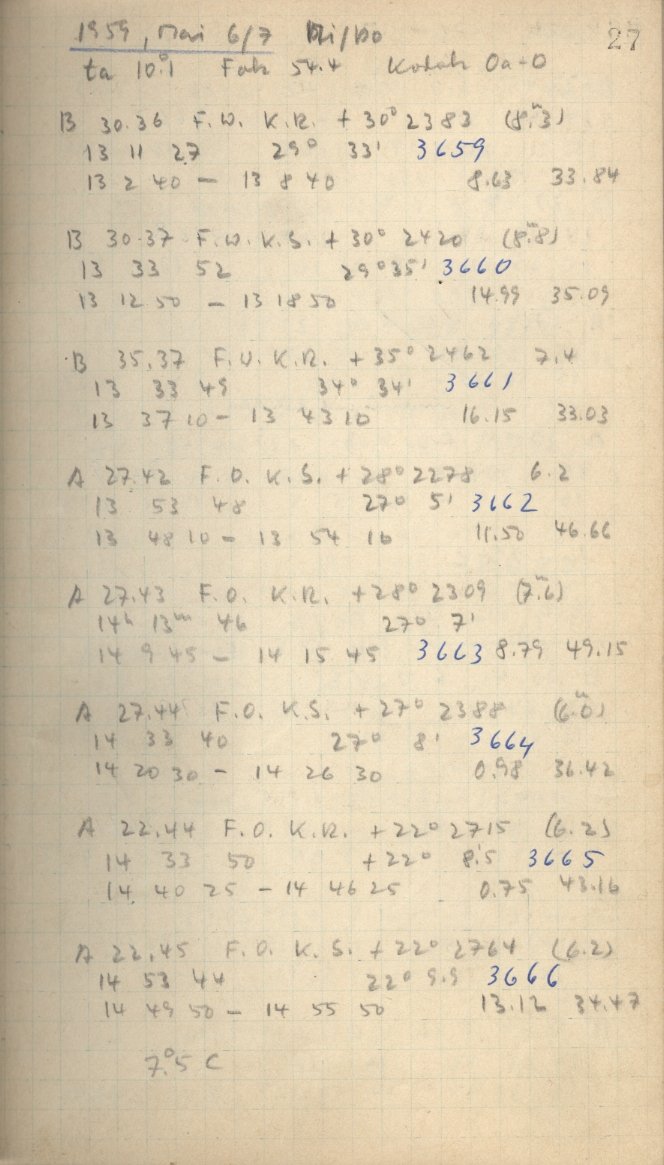 1959, Mai 6/7 Mi/Do 27
ta 10°.1 Fok 54.4 Kodak Oa-O
B 30.36 F.W. K.R. +30° 2383 (8.ᵐ3)
13 11 27 29° 33' 3659
13 2 40 — 13 8 40 8.63 33.84
B 30.37 F.W. K.S. +30° 2420 (8.ᵐ8)
13 33 52 29° 35' 3660
13 12 50 — 13 18 50 14.99 35.09
B 35.37 F.W. K.R. +35° 2462 7.4
13 33 49 34° 34' 3661
13 37 10 — 13 43 10 16.15 33.03
A 27.42 F.O. K.S. +28° 2278 6.2
13 53 48 27° 5' 3662
13 48 10 — 13 54 10 11.50 46.66
A 27.43 F.O. K.R. +28° 2309 (7.ᵐ6)
14ʰ 13ᵐ 46 27° 7'
14 9 45 — 14 15 45 3663 8.79 49.15
A 27.44 F.O. K.S. +27° 2388 (6.ᵐ0)
14 33 40 27° 8' 3664
14 20 30 — 14 26 30 0.98 36.42
A 22.44 F.O. K.R. +22° 2715 (6.2)
14 33 50 +22° 8'.5 3665
14 40 25 — 14 46 25 0.75 43.16
A 22.45 F.O. K.S. +22° 2764 (6.2)
14 53 44 22° 9.9 3666
14 49 50 — 14 55 50 13.12 34.47
7°.5 C